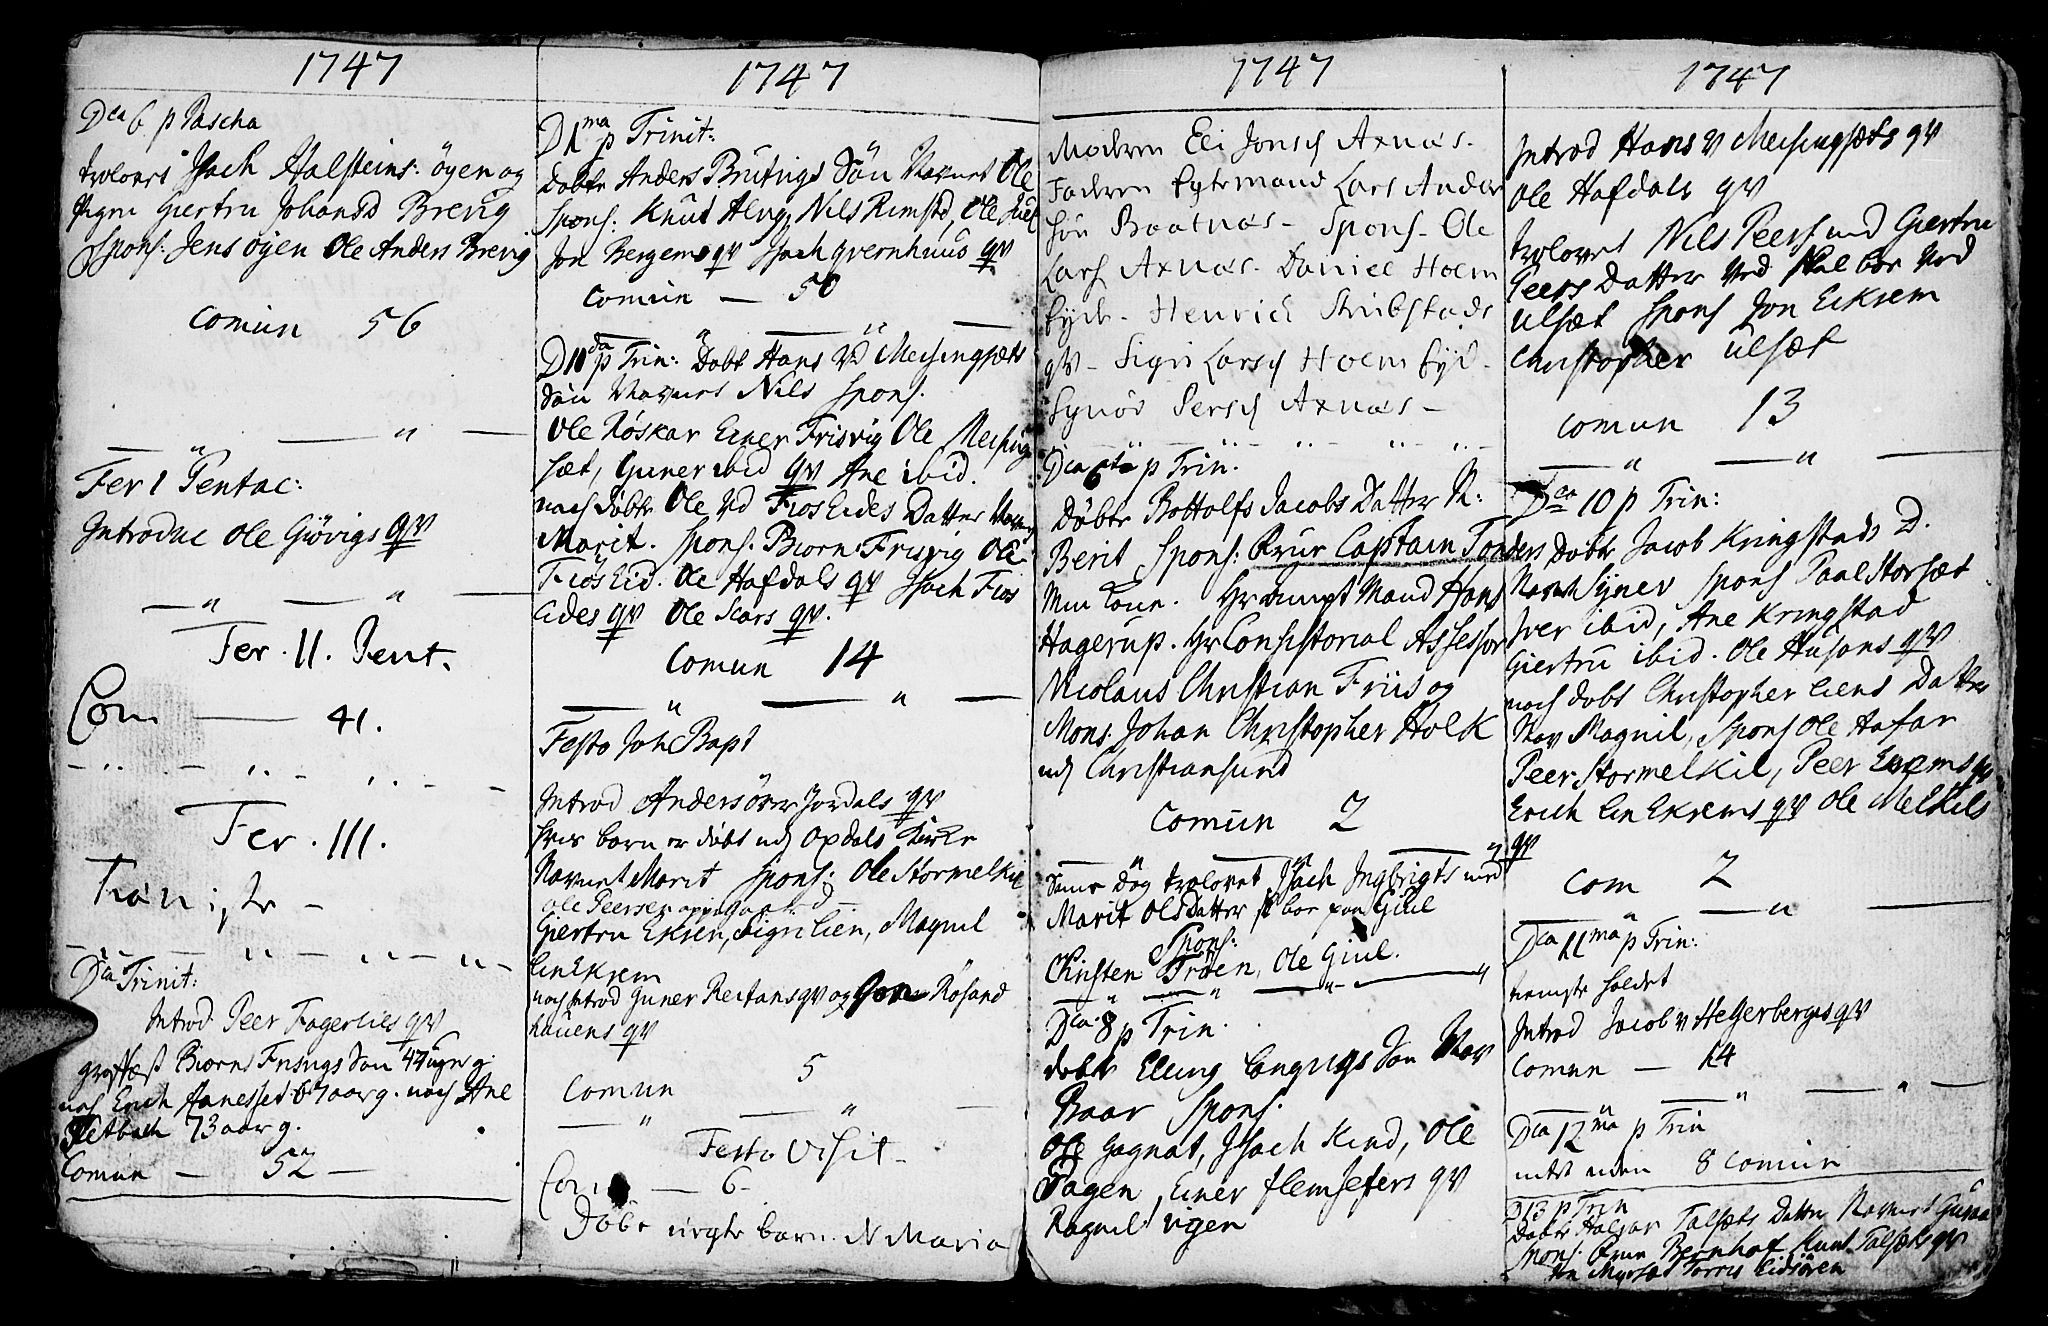 1747
Dca 6 p Pascha
trolovet Isach Halsteins: øyen og
Pigen Giertru Johansd Brevig
Spons: Jens øyen Ole Anders Brevig
Comun 56
Fer 1 Pentac:
Introduc Ole Giøvigs qv
Fer. II. Pent.
Com 41.
Fer. III.
Dca Trinit:
Introd Peer Fagerlies qv
Biørns Frisvigs Søn 4 uger g:
noch Erich 67 aar g. noch Ane
73 aar g.
Comun — 52 —
1747
D 1ma p Trinit:
Døbte Anders Brutrigs Søn Navnet Ole
Spons: Knut Nils Rimstd, Ole
Jon Bergems qv Isach qvernhuus qv
Comun — 50
D 11da p Trin: Døbt Hans Vd Meisingsæts
Søn Navnet Nils Spons.
Ole Røskar Einer Frisvig Ole Meising
sæt, Guner ibid qv Ane ibid.
noch døbte Ole Vd Fios Eides Datter Nav
Marit. Spons. Biørn Frisvig Ole
Fios Eid. Ole Hafdals qv Isach Fios
Eides qv Ole Skars qv.
Comun 14
Festo Joh Bapt
Introd Anders Jordals qv
hvis barn er døbt udj Opdals Kirke
Navnet Marit Spons: Ole Stormelkil
Ole Peersen
Giertru Ekren, Sigri Lien, Magnil
Lin Ekrem
noch Introd Guner Reitans qv og Røsand
hauens qv
Comun 5
Festo Visit
Com — 6
Døbt uegte barn. N Maria
1747
Moderen Eli Jonsd Axnæs.
Faderen Eyde mand Lars Anders
søn Baatnæs — Spons. Ole
Lars Axnæs. Daniel Holm
Eyde. Henrich Skibstads
qv — Sigri Larsd Holm Eyd.
Synøv Persd Axnæs —
Dca 6ta p Trin.
Døbte Bottolfs Jacobs Datter N:
Berit Spons: Frue Captain Tonders
Min Kone. Hr Ampt Mand Hans
Hagerup. Hr Consistorial Assessor
Nicolaus Christian Friis og
Mons: Johan Christopher Holk
udj Christiansund
Comun 2
Same Dag trolovet Isach Ingbrigts med
Marit Olsdatter boe paa Giul
Spons:
Christen Trøen, Ole Giul.
Dca 8 p Trin.
døbte Elling Langvigs Søn Nav
Baar Spons.
Ole Gagnat, Isach Kind, Ole
Fagen, Einer flemsæters qv
Ragnil vigen
1747
Introd Hans v Meisingsæts qv
Ole Hafdals qv
trolovet Nils Peers med Giertru
Peers Datter Ved skal boe Ved
Ulsæt Spons Jon Eikrem
Christopher Ulsæt
Comun 13
Dca 10 p Trin:
Døbte Jacob Kringstads D.
Navn Synev Spons Paal Storsæt
Iver ibid, Ane Kringstad
Giertru ibid. Ole Husans qv
noch døbt Christopher Liens Datter
Nav Magnil, Spons Ole Hafar
Peer Stormelkil, Peer
Erich Lin Ekrems qv Ole Melkils
qv
Com 2
Dca 11ma p Trin:
Introd Jacob v Hegerbergs qv
Comun — 14
Dca 12ma p Trin
intet uden 8 Comun
D 13 p Trin
Døbte Halvar Talsæts Datter Navnet
Spons. Frue Bernhoft Knut Talsæts qv
Torris Eidsøren